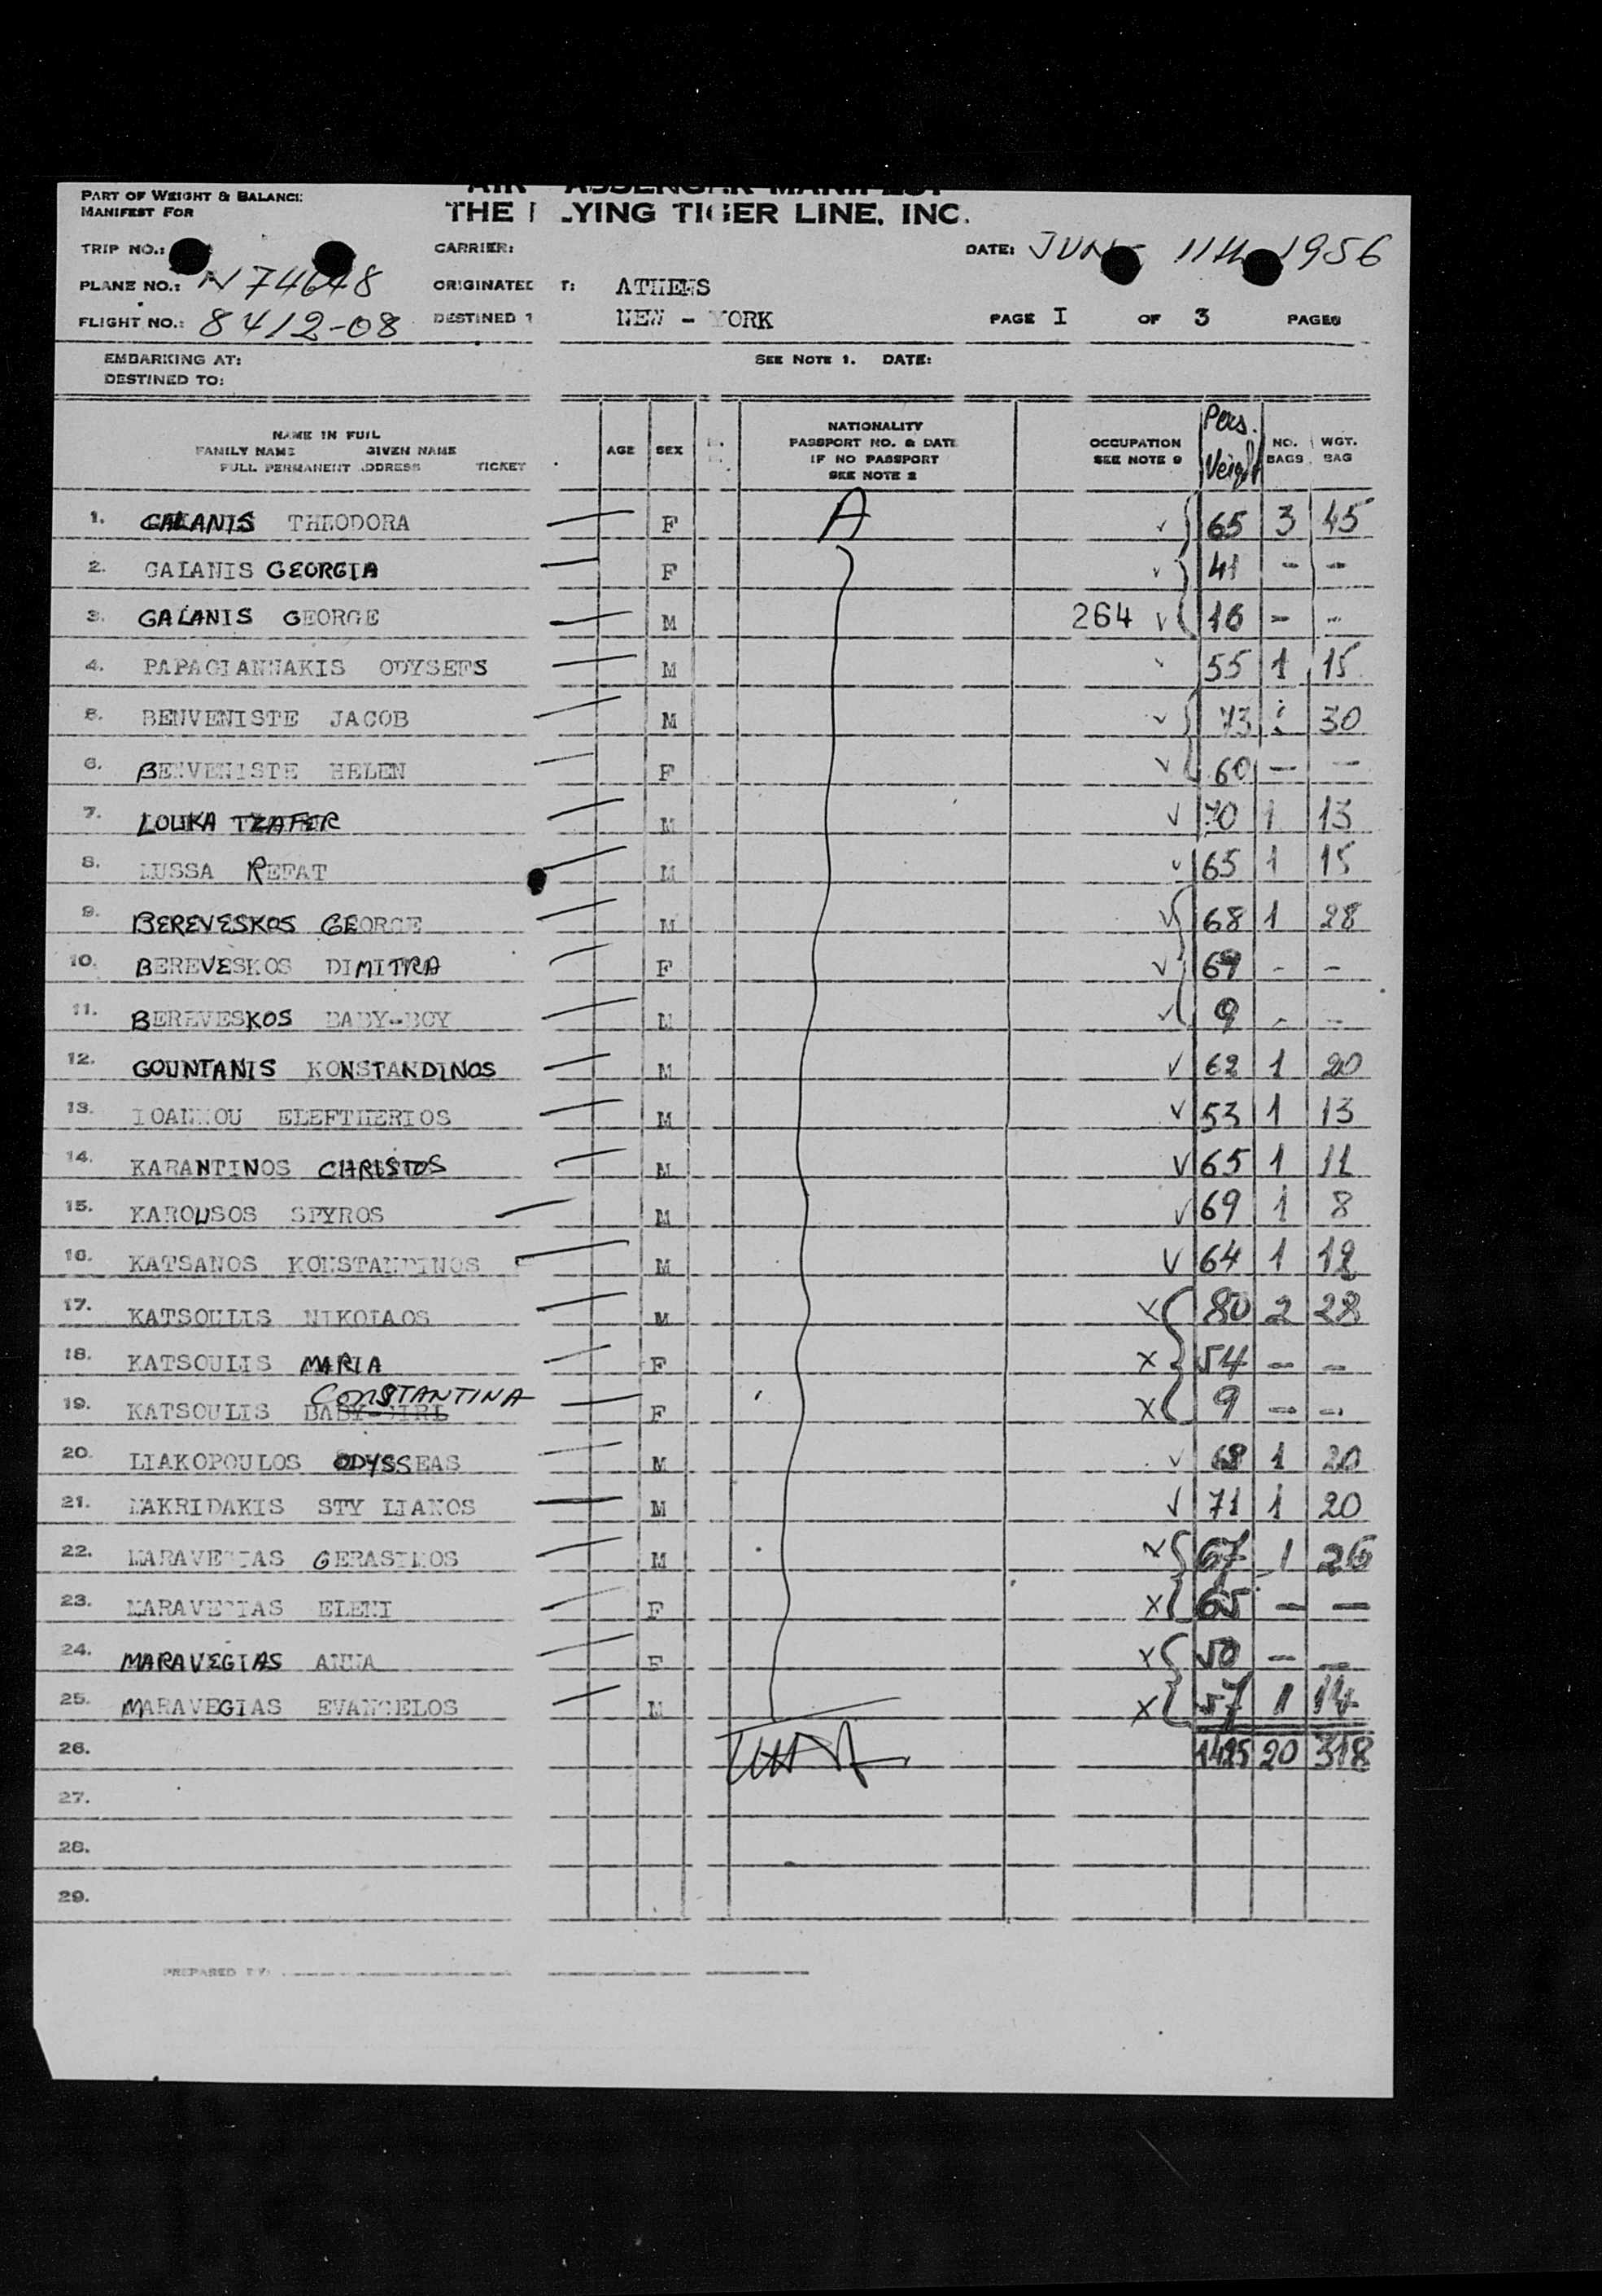 PART OF WEIGHT & BALANCE
MANIFEST FOR
THE FLYING TIGER LINE, INC.
TRIP NO.: CARRIER: DATE: JUNE 11TH 1956
PLANE NO.: N74648 ORIGINATED T: ATHENS
FLIGHT NO.: 8412-08 DESTINED T NEW - YORK PAGE I OF 3 PAGES
EMBARKING AT: SEE NOTE 1. DATE:
DESTINED TO:
NAME IN FULL
FAMILY NAME GIVEN NAME
FULL PERMANENT ADDRESS TICKET
AGE SEX
NATIONALITY
PASSPORT NO. & DATE
IF NO PASSPORT
SEE NOTE 2
OCCUPATION
SEE NOTE 9
Pers.
Weight
NO.
BAGS
WGT.
BAG
1. GALANIS THEODORA — F A √ 65 3 45
2. GALANIS GEORGIA — F √ 41 - -
3. GALANIS GEORGE — M 264 √ 16 - -
4. PAPAGIANNAKIS ODYSEFS — M √ 55 1 15
5. BENVENISTE JACOB — M √ 73 30
6. BENVENISTE HELEN — F √ 60 - -
7. LOUKA TZAFER — M √ 70 1 13
8. LUSSA REFAT — M √ 65 1 15
9. BEREVESKOS GEORGE — M √ 68 1 28
10. BEREVESKOS DIMITRA — F √ 69 - -
11. BEREVESKOS BABY-BOY — M √ 9 - -
12. GOUNTANIS KONSTANDINOS — M √ 62 1 20
13. IOANNOU ELEFTHERIOS — M √ 53 1 13
14. KARANTINOS CHRISTOS — M √ 65 1 11
15. KAROUSOS SPYROS — M √ 69 1 8
16. KATSANOS KONSTANDINOS — M √ 64 1 12
17. KATSOULIS NIKOLAOS — M X 80 2 28
18. KATSOULIS MARIA — F X 54 - -
CONSTANTINA
19. KATSOULIS BABY-GIRL — F X 9 - -
20. LIAKOPOULOS ODYSSEAS — M √ 68 1 20
21. MAKRIDAKIS STY LIANOS — M √ 71 1 20
22. MARAVEGIAS GERASIMOS — M X 67 1 26
23. MARAVEGIAS ELENI — F X 65 - -
24. MARAVEGIAS ANNA — F X 50 - -
25. MARAVEGIAS EVANGELOS — M X 57 1 14
26. 1425 20 318
27.
28.
29.
PREPARED BY: